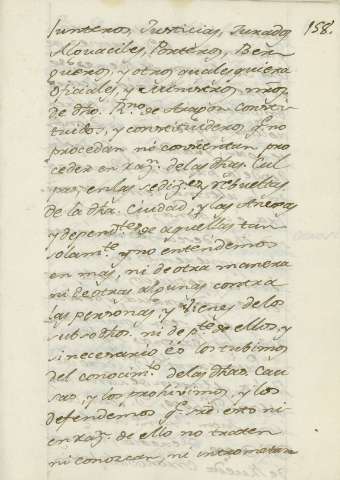 158.
Junteros, Justicias, Jurados
Alguaciles, Porteros, Ber-
gueros, y otros quales quiera
oficiales, y Ministros nros.
de dho. Rno. de Aragon consti-
tuidos, y constituideros, q. no
procedan ni consientan pro
ceder en raz. de las dhas. Cul
pas, en las sediz.es y rebueltas
de la dha. Ciudad, y las Anexas
y depend.tes de aquellas tan
solam.te y no entendemos
en mas, ni de otra manera
ni de otras algunas contra
las personas y Vienes de los
subsodhos. ni de p.te de ellos, y
si necesario és los tubimos
del conocim.to de las dhas. Cau
sas, y los prohivimos, y los
defendemos q. sre. esto ni
en raz. de ello no traten
ni conozcan, ni intrometan